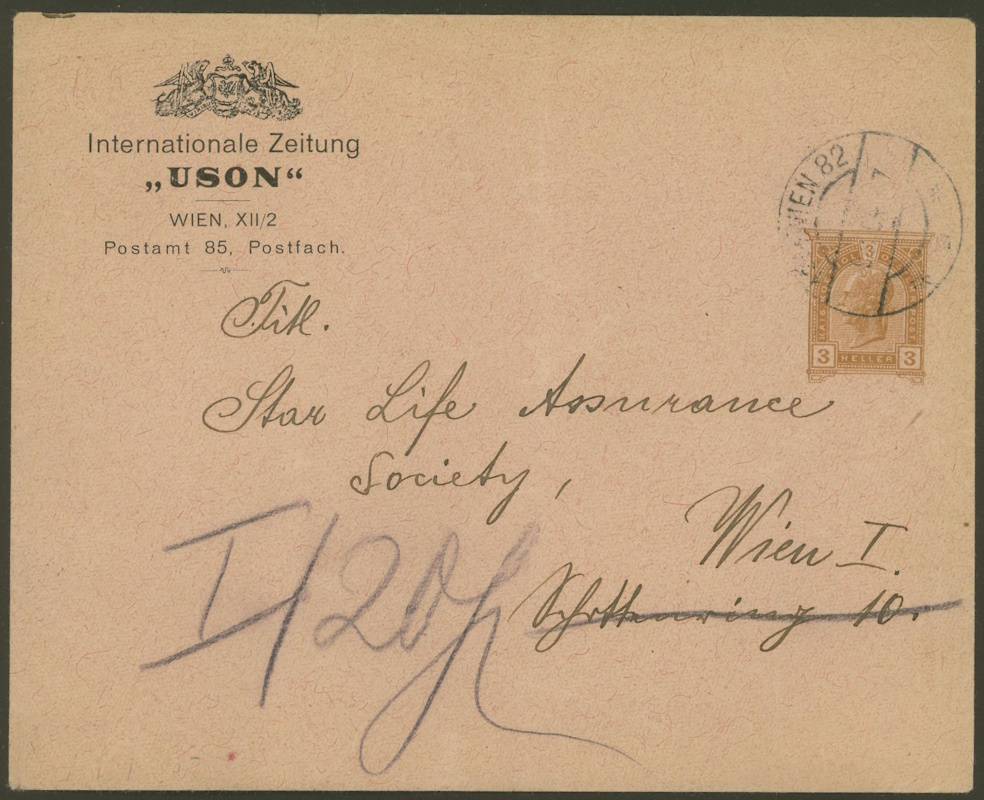 Internationale Zeitung
„USON“
WIEN, XII/2
Postamt 85, Postfach.
WIEN 82
3
3 HELLER 3
Titl.
Star Life Assurance
Society,
Wien I.
Schottenring 10.
I/20